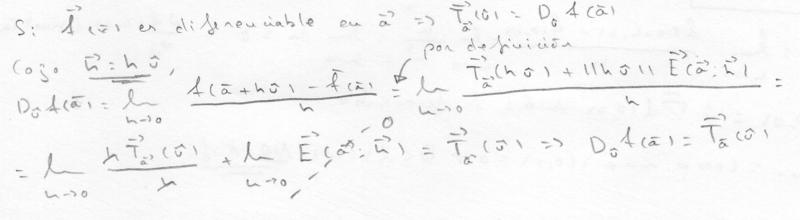 Si f⃗(x̄) es diferenciable en a⃗ => T⃗_a⃗(ū) = D_ū f(ā)
por definición
Cojo h⃗ = h ū,
D_ū f(ā) = lim_{h→0} (f(ā + hū) - f(ā))/h = lim_{h→0} (T⃗_a⃗(hū) + ||hū|| E⃗(a⃗; h⃗))/h =
= lim_{h→0} (h T⃗_a⃗(ū))/h + lim_{h→0} E⃗(a⃗; h⃗) 0 = T⃗_ā(ū) => D_ū f(ā) = T⃗_ā(ū)